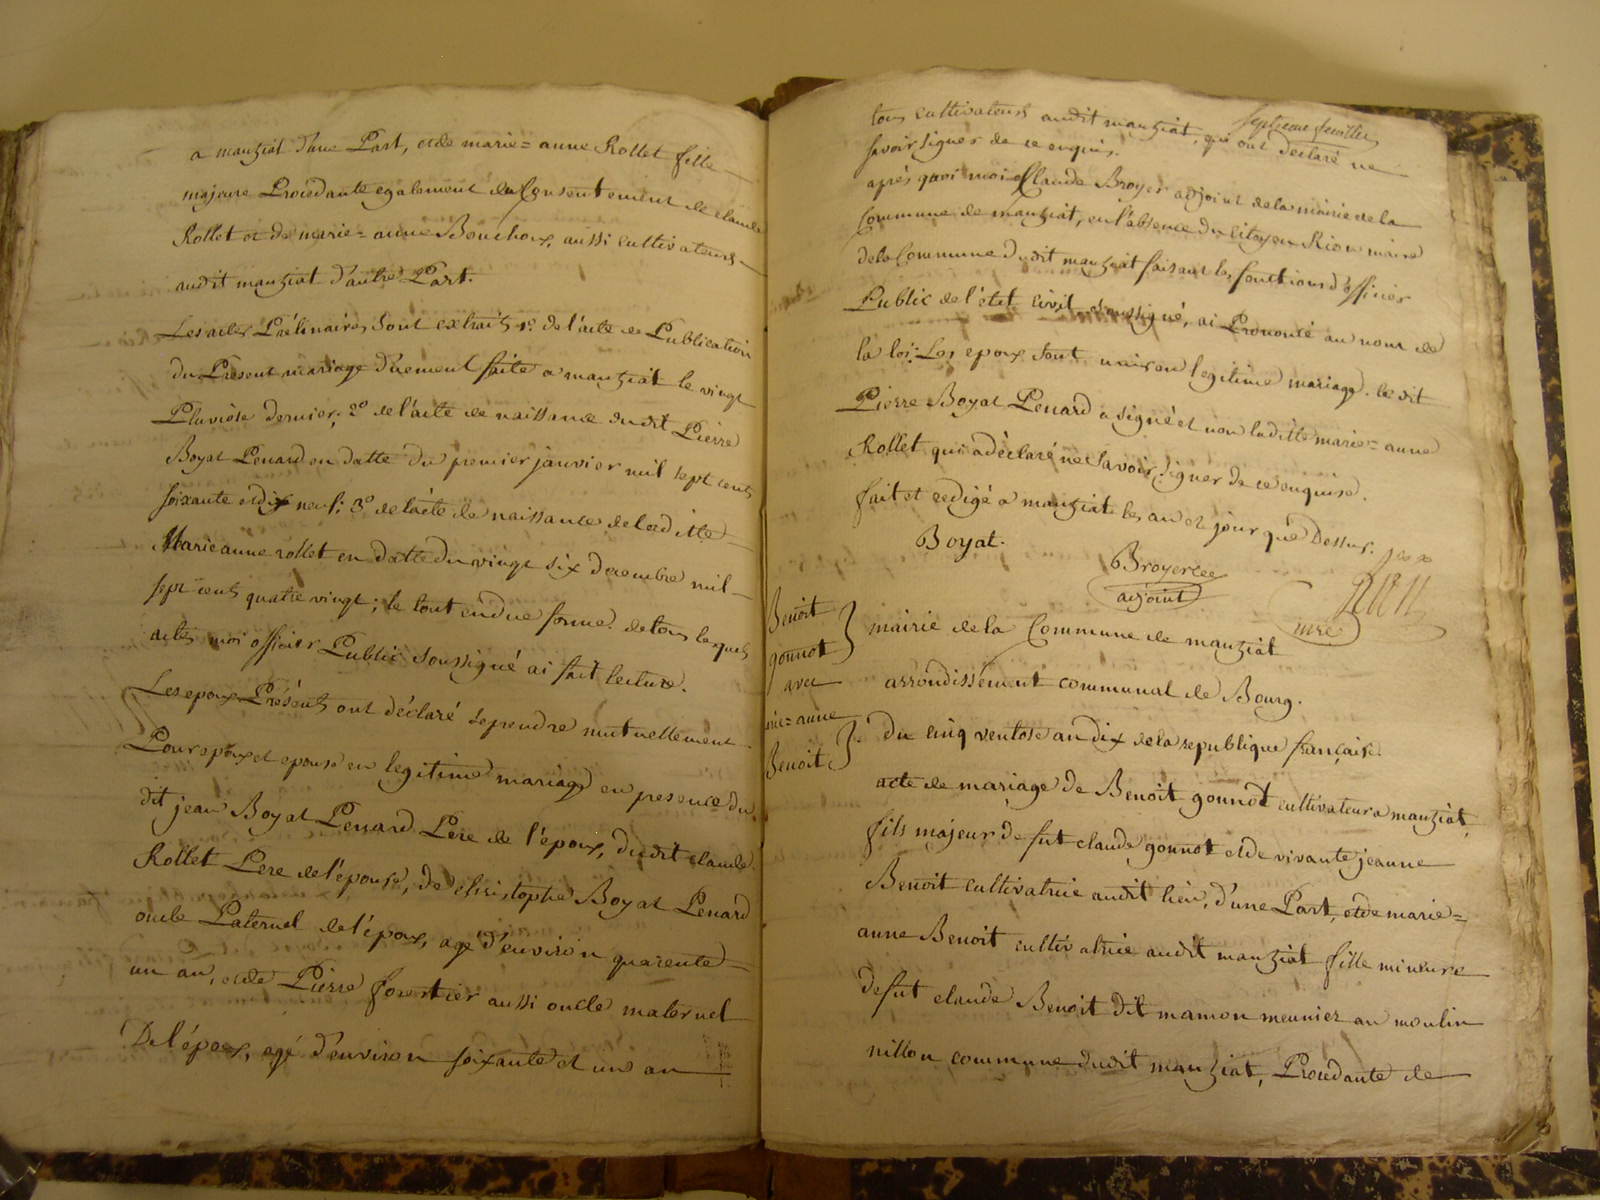 a manziat d'une Part, et de marie=anne Rollet fille
majeure Procedante egalement du Consentement de claude
Rollet et de marie=anne Bouchoux, aussi cultivateurs
audit manziat d'autre Part.
Les actes Prélinaires sont extraits 1º de l'acte de Publication
du Present mariage duement faite a manziat le vingt
Pluviôse dernier; 2º de l'acte de naissance dudit Pierre
Boyat Penard en datte du premier janvier mil sept cents
soixante et dix neuf; 3º de l'acte de naissance de laditte
Marie anne rollet en datte du vingt six decembre mil
sept cents quatre vingt; le tout en due forme. de tous lesquels
actes moi officier Public soussigné ai fait lecture.
Les epoux Présents ont déclaré seprendre mutuellement
Pour epoux et epouse en legitime mariage en presence du
dit jean Boyat Penard Pere de l'époux, dudit claude
Rollet Pere de l'épouse, de christophe Boyat Penard
oncle Paternel de l'époux, agé d'environ quarente
un an, et de Pierre forestier aussi oncle maternel
De l'époux, agé d'environ soixante et un an
septieme feuillet
tous cultivateurs audit manziat, qui ont declaré ne
savoir signer de ce enquis.
après quoi moi Claude Broyer adjoint de la mairie de la
Commune de manziat, en l'absence du citoyen Rion maire
de la Commune dudit manziat faisant les fonctions d'officier
Public de l'état civil soussigné, ai Prononcé au nom de
la loi: Les epoux sont unis en legitime mariage. le dit
Pierre Boyat Penard a signé et non laditte marie=anne
Rollet qui a déclaré ne savoir signer de ce enquise.
fait et redigé a manziat les an et jour que Dessus.
Boyat.
Broyer
adjoint
mre
Benoit
gonnot
avec
mie=anne
Benoit
mairie de la Commune de manziat
arrondissement communal de Bourg.
Du cinq ventose an dix de la republique française.
acte de mariage de Benoit gonnot cultivateur a manziat,
fils majeur de fut claude gonnot et de vivante jeanne
Benoit cultivatrice audit lieu, d'une Part, et de marie=
anne Benoit cultivatrice audit manziat fille mineure
de fut claude Benoit dit mamon meunier au moulin
nillon commune dudit manziat, Procedante de